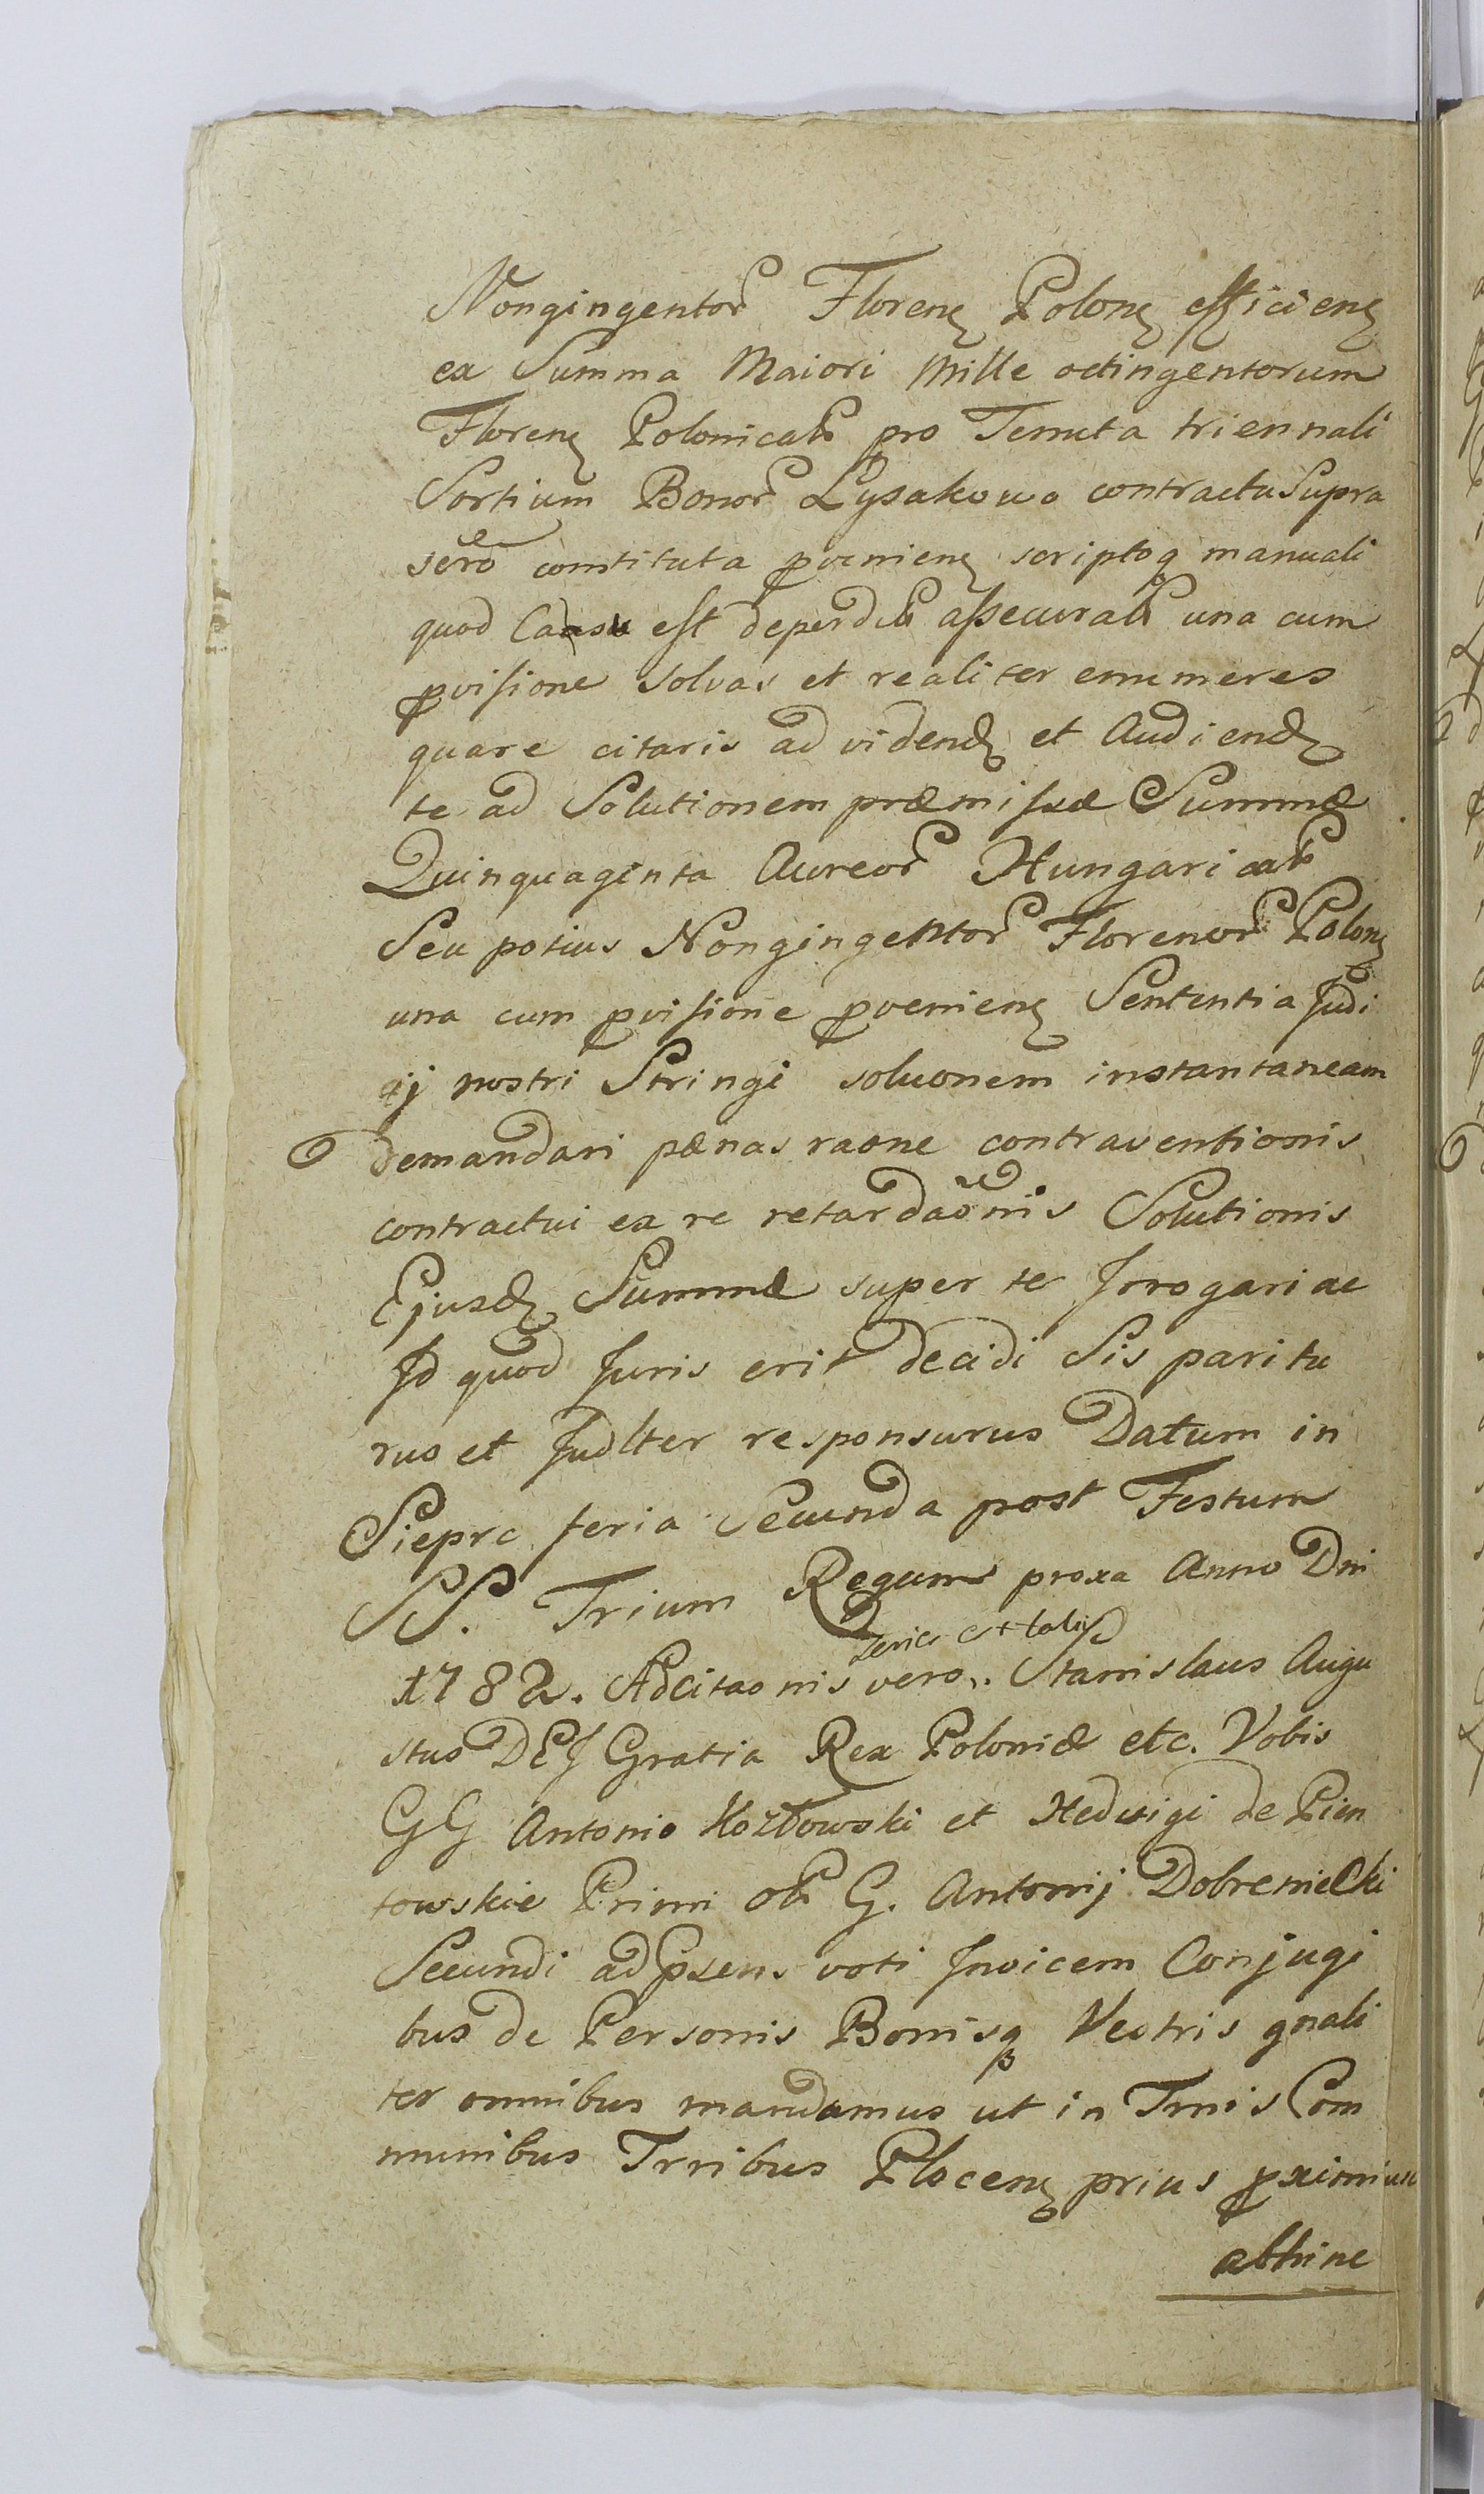 Nongingentor Florenꝫ Polonꝫ efficienꝫ
ex Summa Maiori Mille octingentorum
Florenꝫ Polonicalꝭ pro Tenuta triennali
Sortium Bonor Łysakowo contractu Supra
scro constituta ꝓvenienꝫ scriptoqꝫ manuali
quod Casu est deperditꝭ assecuratꝭ una cum
ꝓvisione solvas et realiter enumeres
quare citaris ad videndꝫ et Audiendꝫ
te ad Solutionem præmissæ Summæ
Quinquaginta Aureor Hungaricalꝭ
Seu potius Nongingentor Florenor Polonꝫ
una cum ꝓvisione ꝓvenienꝫ Sententia Judi
cij nostri Stringi soluonem instantaneam
demandari pænas raone contraventionis
contractui ex re retardaonis Solutionis
Ejusdꝫ Summæ super te Jrrogari ac
Jd quod Juris erit decidi Sis paritu
rus et Judlter responsurus Datum in
Sieprc feria Secunda post Festum
SS. Trium Regum proxa Anno Dni
1782. Adcitaonis vero Series est talis. Stanislaus Augu
stus DEJ Gratia Rex Poloniæ etc. Vobis
GG Antonio Kozłowski et Hedvigi de Pien
towskie Primi olꝭ G. Antonij Dobrenielki
Secundi ad ꝓsens voti Jnvicem Conjugi
bus de Personis Bonisqꝫ Vestris gnali
ter omnibus mandamus ut in Trnis Com
munibus Trribus Plocenꝫ prius ꝓximius
abhinc